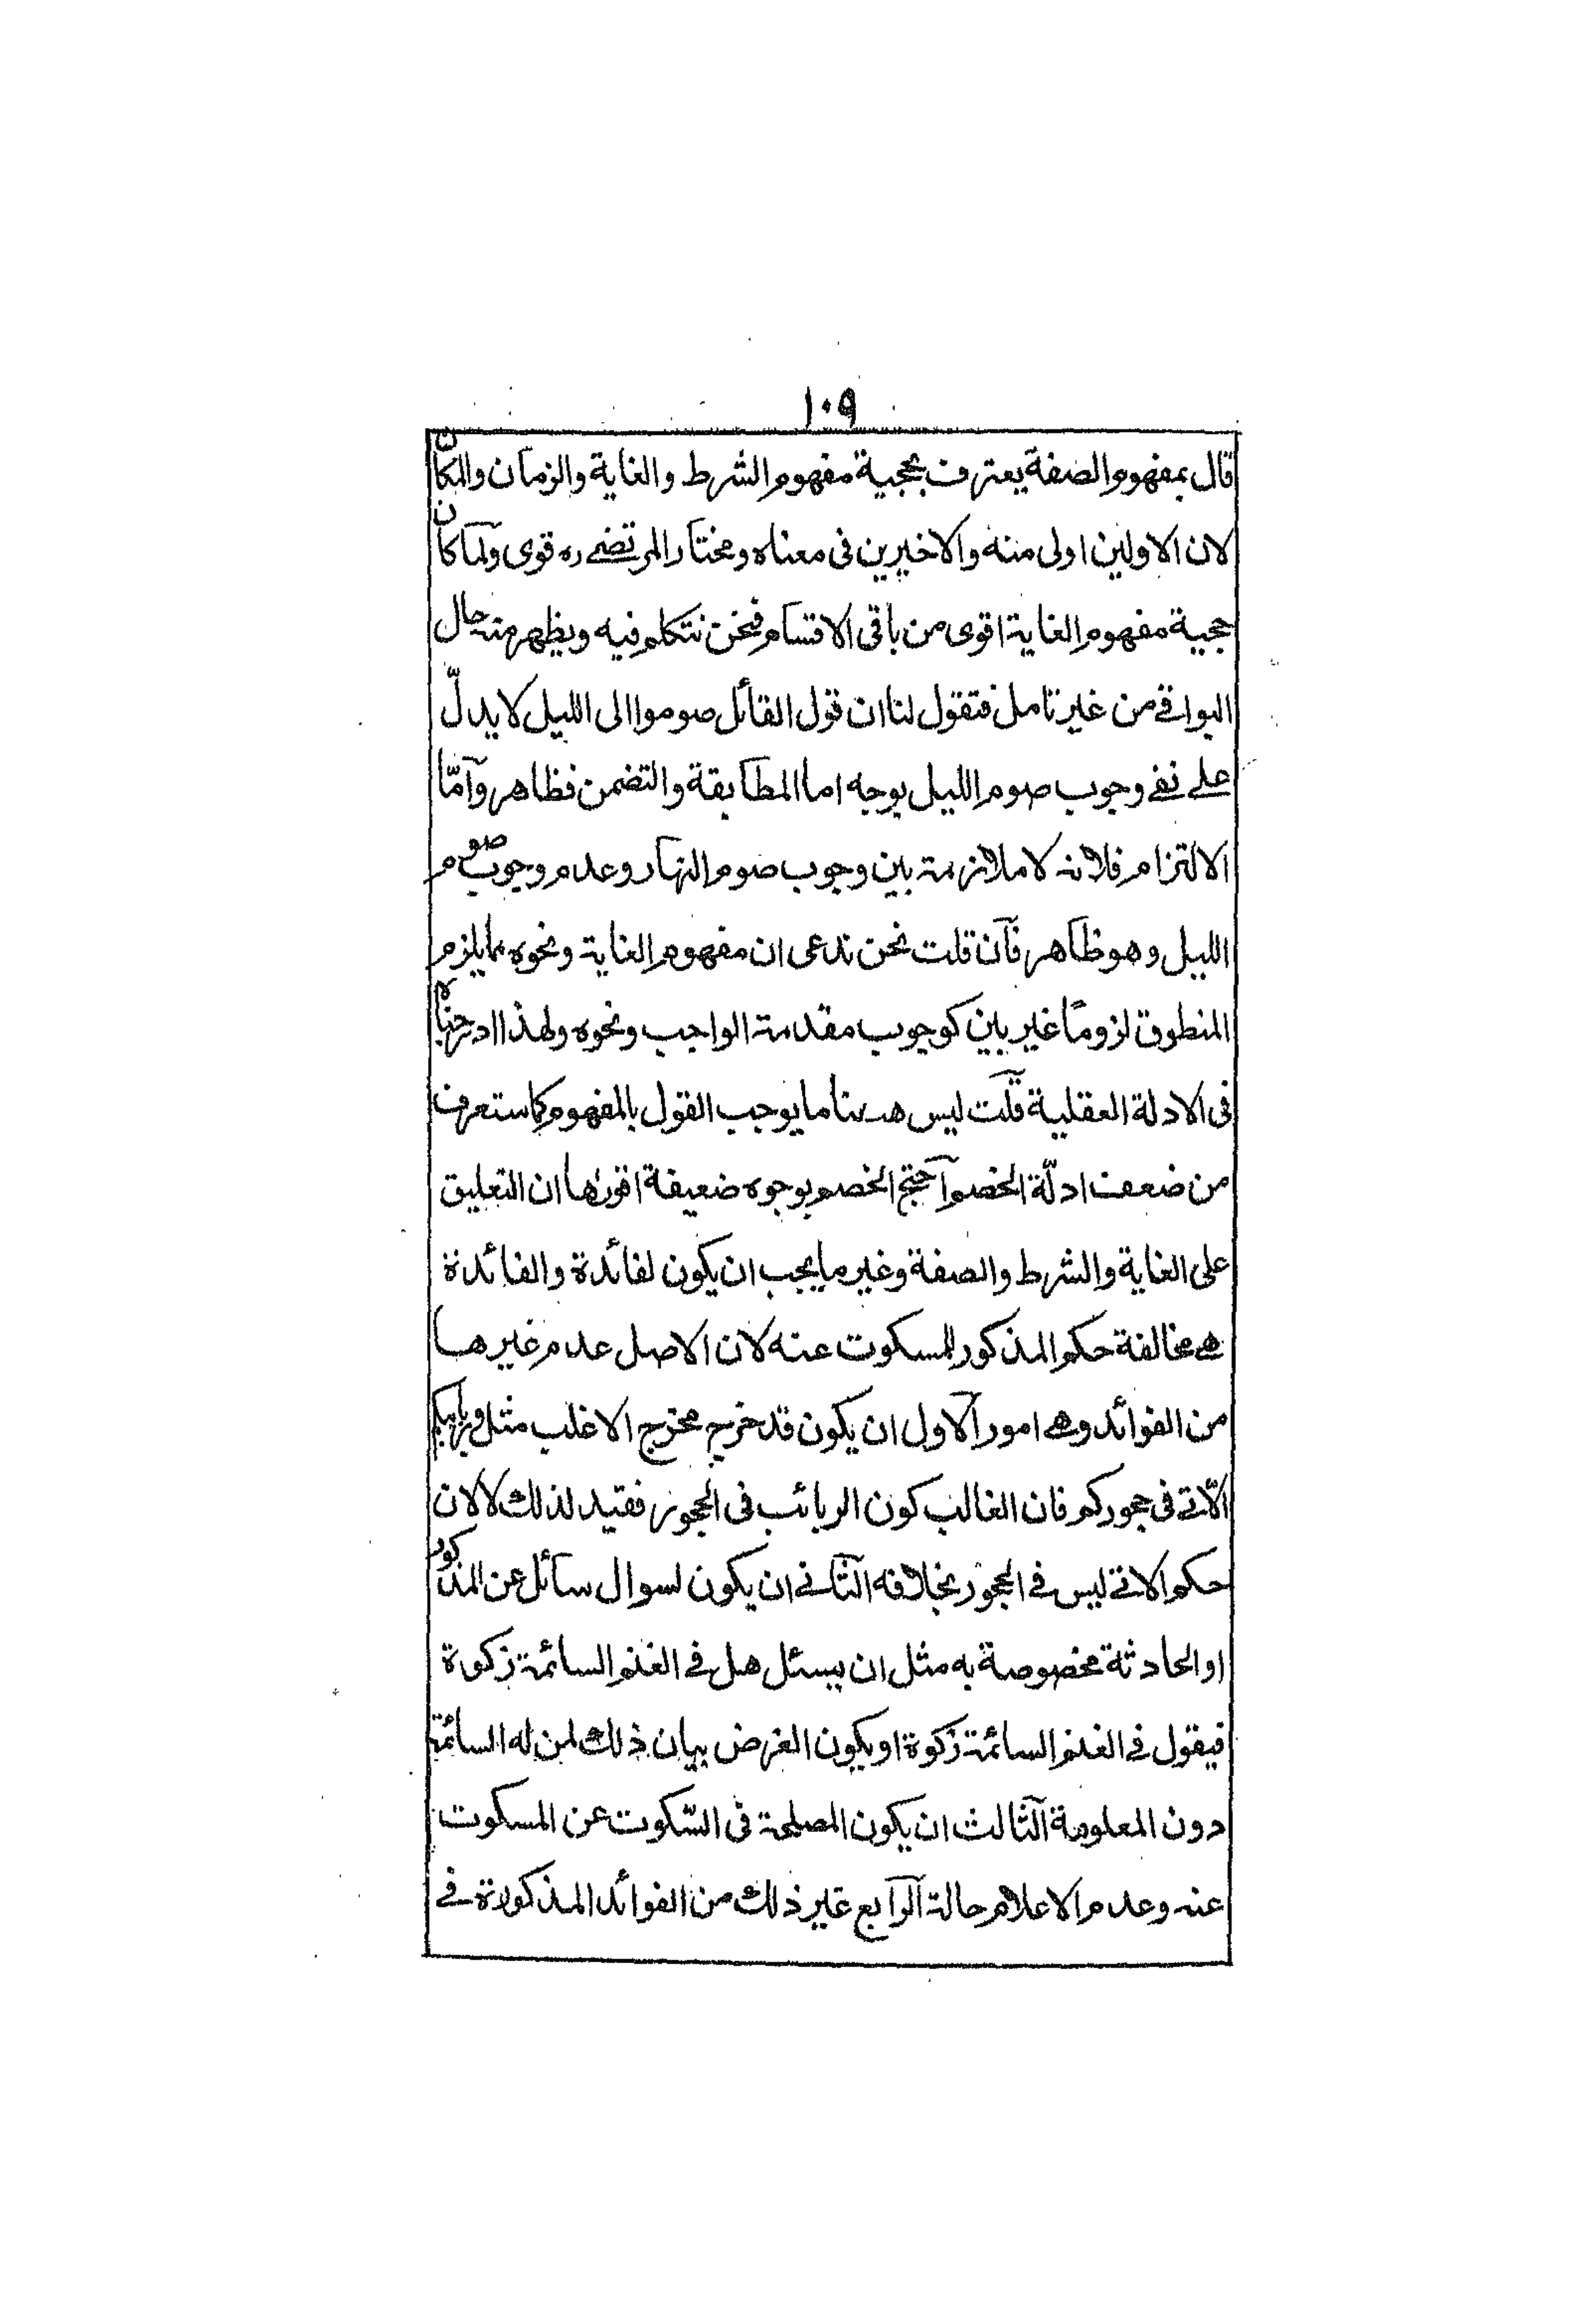 ١٠٩
قال بمفهوم الصفة يعترف بحجية مفهوم الشرط والغاية والزمان والمكان
لان الاولين اولى منه والاخيرين فى معناه ومختار المرتضے ره قوى ولما كان
حجية مفهوم الغاية اقوى من باقى الاقسام فنحن نتكلم فيه ويظهر منه حال
البواقے من غير تامل فنقول لنا ان قول القائل صوموا الى الليل لا يدلّ
علے نفے وجوب صوم الليل بوجه اما المطابقة والتضمن فظاهر وامّا
الالتزام فلانه لا ملازمة بين وجوب صوم النهار وعدم وجوب صوم
الليل وهو ظاهر فان قلت نحن ندعى ان مفهوم الغاية ونحوه مما يلزم
المنطوق لزومًا غير بين كوجوب مقدمة الواجب ونحوه ولهذا ادرجناه
فى الادلة العقلية قلت ليس ههنا ما يوجب القول بالمفهوم كما ستعرف
من ضعف ادلّة الخصم احتج الخصم بوجوه ضعيفة اقوىٰها ان التعليق
على الغاية والشرط والصفة وغيرها يجب ان يكون لفائدة والفائدة
هے مخالفة حكم المذكور للمسكوت عنه لان الاصل عدم غيرها
من الفوائد وهے امور الاول ان يكون قد خرج مخرج الاغلب مثل وربائبكم
الّاتے فى حجوركم فان الغالب كون الربائب فى الحجور فقيد لذلك لا لان
حكم الاتے ليس فے الحجور بخلافه الثانے ان يكون لسوال سائل عن المذكور
او الحادثة مخصوصة به مثل ان يسئل هل فے الغنم السائمة زكوة
فيقول فے الغنم السائمة زكوة او يكون الغرض بيان ذلك لمن له السائمة
دون المعلومة الثالث ان يكون المصلحة فى السّكوت عن المسكوت
عنه وعدم الاعلام حالة الرابع غير ذلك من الفوائد المذكورة فے